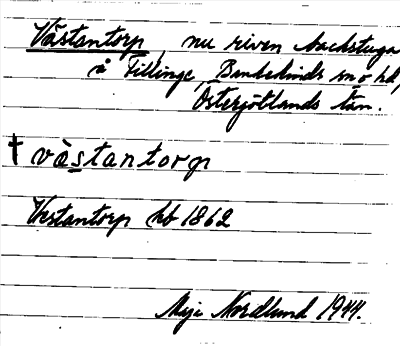 Västantorp, nu riven backstuga
å Fillinge, Bankekinds sn o hd,
Östergötlands län.
† västantorp
Vestantorp hb 1862
Maja Nordlund 1944.